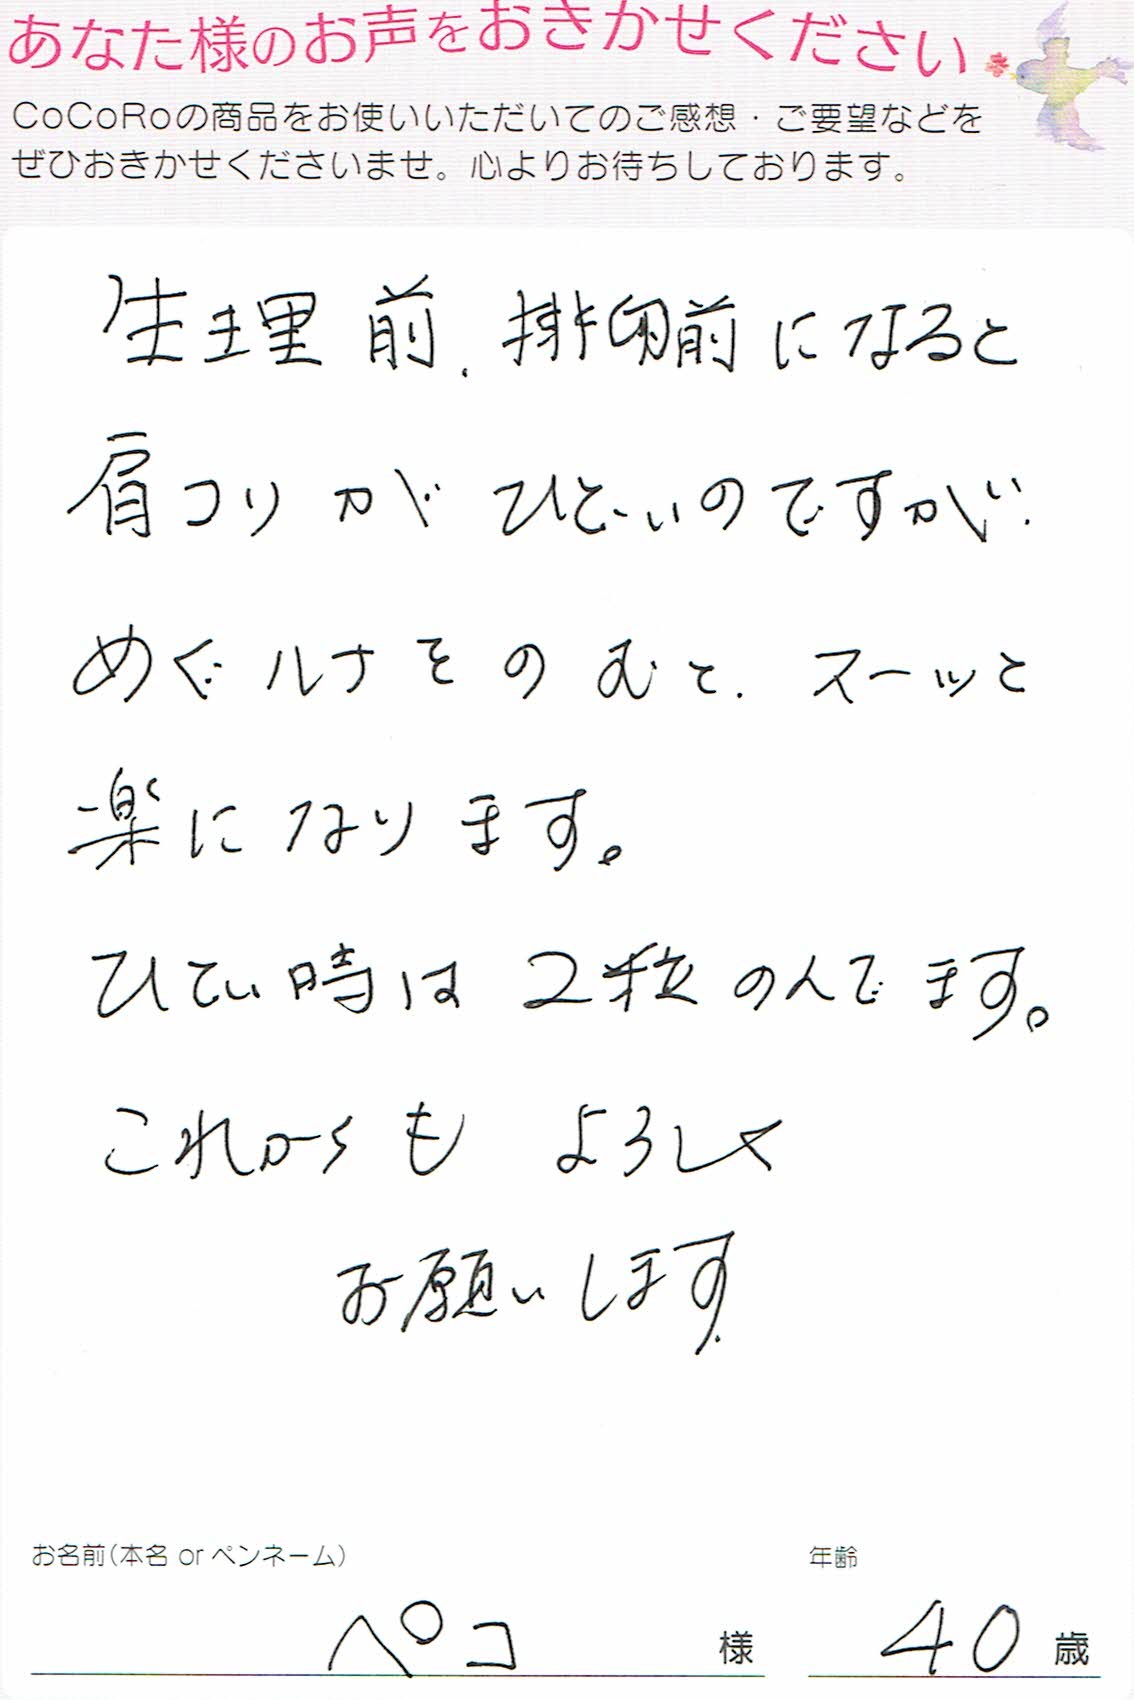 あなた様のお声をおきかせください
CoCoRoの商品をお使いいただいてのご感想・ご要望などを
ぜひおきかせくださいませ。心よりお待ちしております。
生理前、排卵前になると
肩コリがひどいのですが、
めぐルナをのむと、スーッと
楽になります。
ひどい時は2粒のんでます。
これからもよろしく
お願いします
お名前(本名 or ペンネーム) 年齢
ペコ 様 40 歳